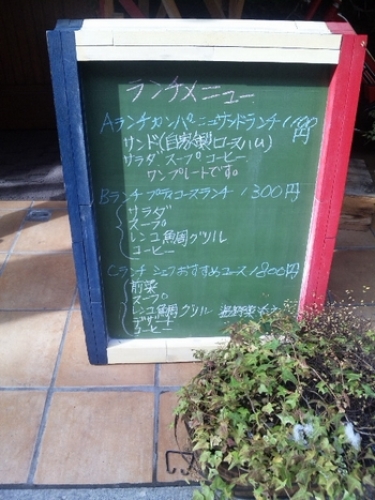 ランチメニュー
Aランチ カンパーニュサンドランチ 1100円
サンド(自家製ロースハム)
サラダ スープ コーヒー
ワンプレートです。
Bランチ プティコースランチ 1300円
サラダ
スープ
レンコ鯛グリル
コーヒー
Cランチ シェフおすすめコース 1800円
前菜
スープ
レンコ鯛グリル
デザート
コーヒー